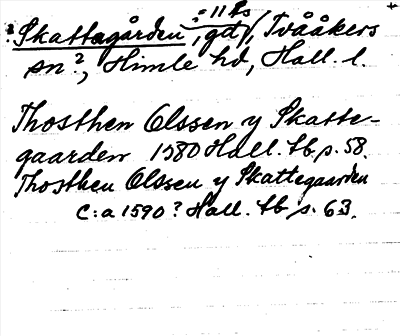 ? Skattagården, :=11 Rs, gd, Tvååkers
sn ?, Himle hd, Hall. l.
Thosthen Olssen y Skatte-
gaarden 1580 Hall. tb p. 58.
Thosthen Olssen y Skattegaarden
C:a 1590? Hall. tb p. 63.